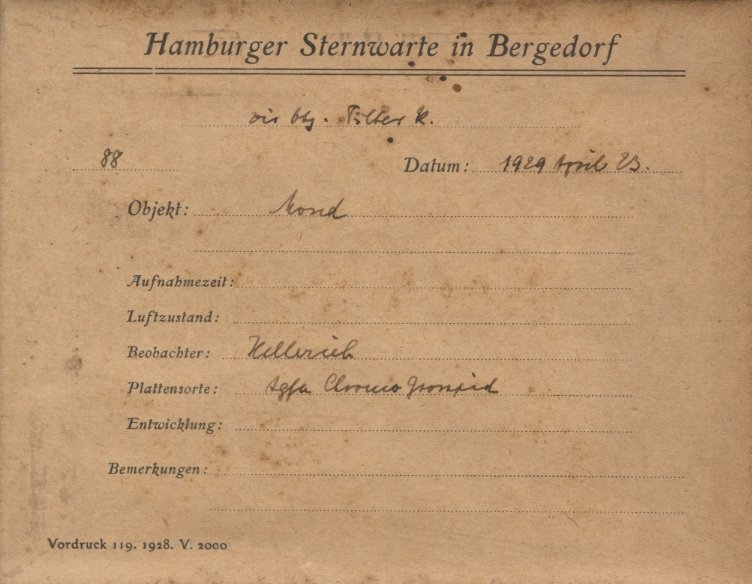 Hamburger Sternwarte in Bergedorf
vis Obj. Filter k.
88 Datum: 1929 April 23.
Objekt: Mond
Aufnahmezeit:
Luftzustand:
Beobachter: Hellerich
Plattensorte: Agfa Chromo Isorapid
Entwicklung:
Bemerkungen:
Vordruck 119. 1928. V. 2000